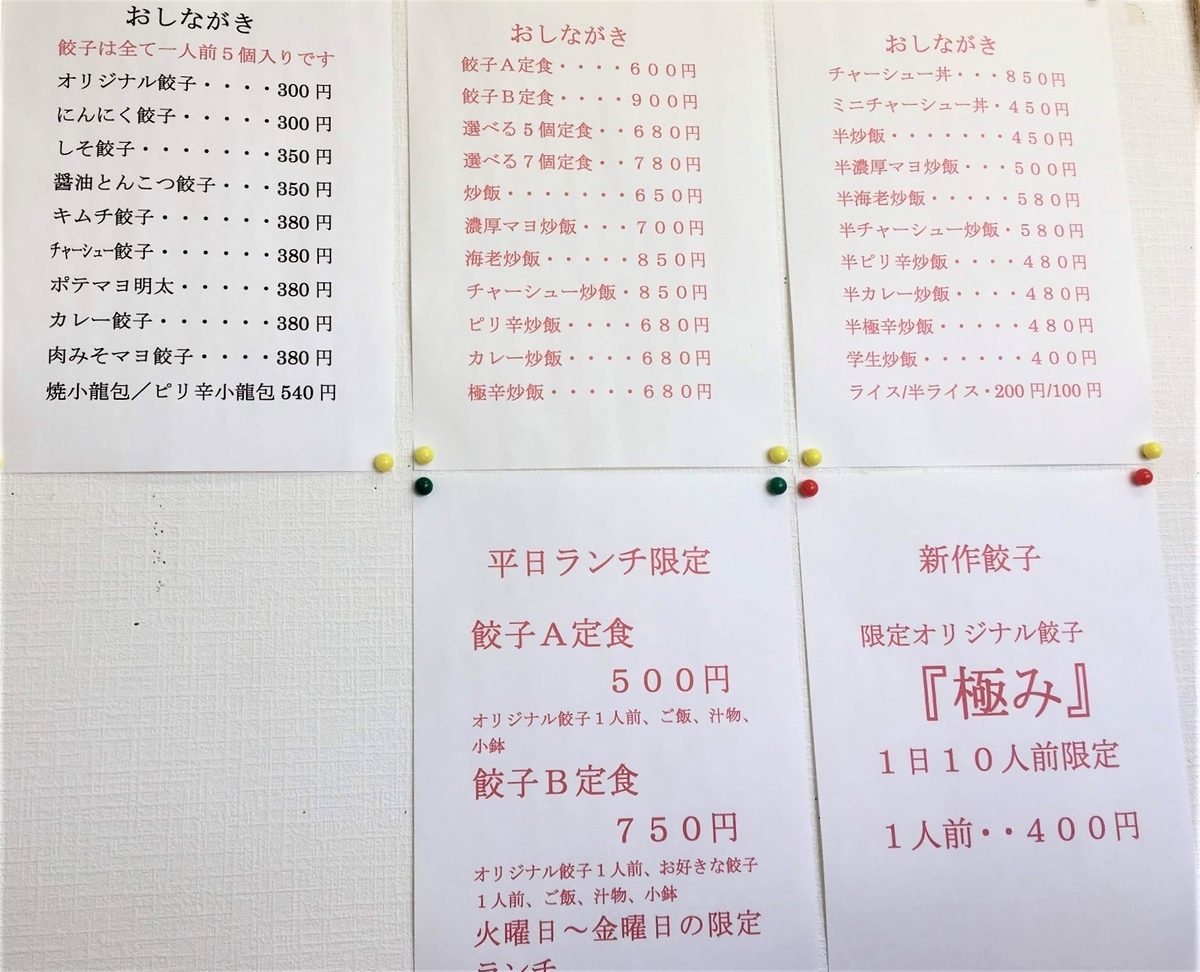 おしながき
餃子は全て一人前５個入りです
オリジナル餃子・・・・300 円
にんにく餃子・・・・・300 円
しそ餃子・・・・・・・350 円
醤油とんこつ餃子・・・350 円
キムチ餃子・・・・・・380 円
ﾁｬｰｼｭｰ餃子・・・・・・380 円
ポテマヨ明太・・・・・380 円
カレー餃子・・・・・・380 円
肉みそマヨ餃子・・・・380 円
焼小龍包／ピリ辛小龍包 540 円
おしながき
餃子Ａ定食・・・・６００円
餃子Ｂ定食・・・・９００円
選べる５個定食・・６８０円
選べる７個定食・・７８０円
炒飯・・・・・・・６５０円
濃厚マヨ炒飯・・・７００円
海老炒飯・・・・・８５０円
チャーシュー炒飯・８５０円
ピリ辛炒飯・・・・６８０円
カレー炒飯・・・・６８０円
極辛炒飯・・・・・６８０円
おしながき
チャーシュー丼・・・８５０円
ミニチャーシュー丼・４５０円
半炒飯・・・・・・・４５０円
半濃厚マヨ炒飯・・・５００円
半海老炒飯・・・・・５８０円
半チャーシュー炒飯・５８０円
半ピリ辛炒飯・・・・４８０円
半カレー炒飯・・・・４８０円
半極辛炒飯・・・・・４８０円
学生炒飯・・・・・・４００円
ライス/半ライス・200 円/100 円
平日ランチ限定
餃子Ａ定食
５００円
オリジナル餃子１人前、ご飯、汁物、
小鉢
餃子Ｂ定食
７５０円
オリジナル餃子１人前、お好きな餃子
１人前、ご飯、汁物、小鉢
火曜日～金曜日の限定
ランチ
新作餃子
限定オリジナル餃子
『極み』
１日１０人前限定
１人前・・４００円